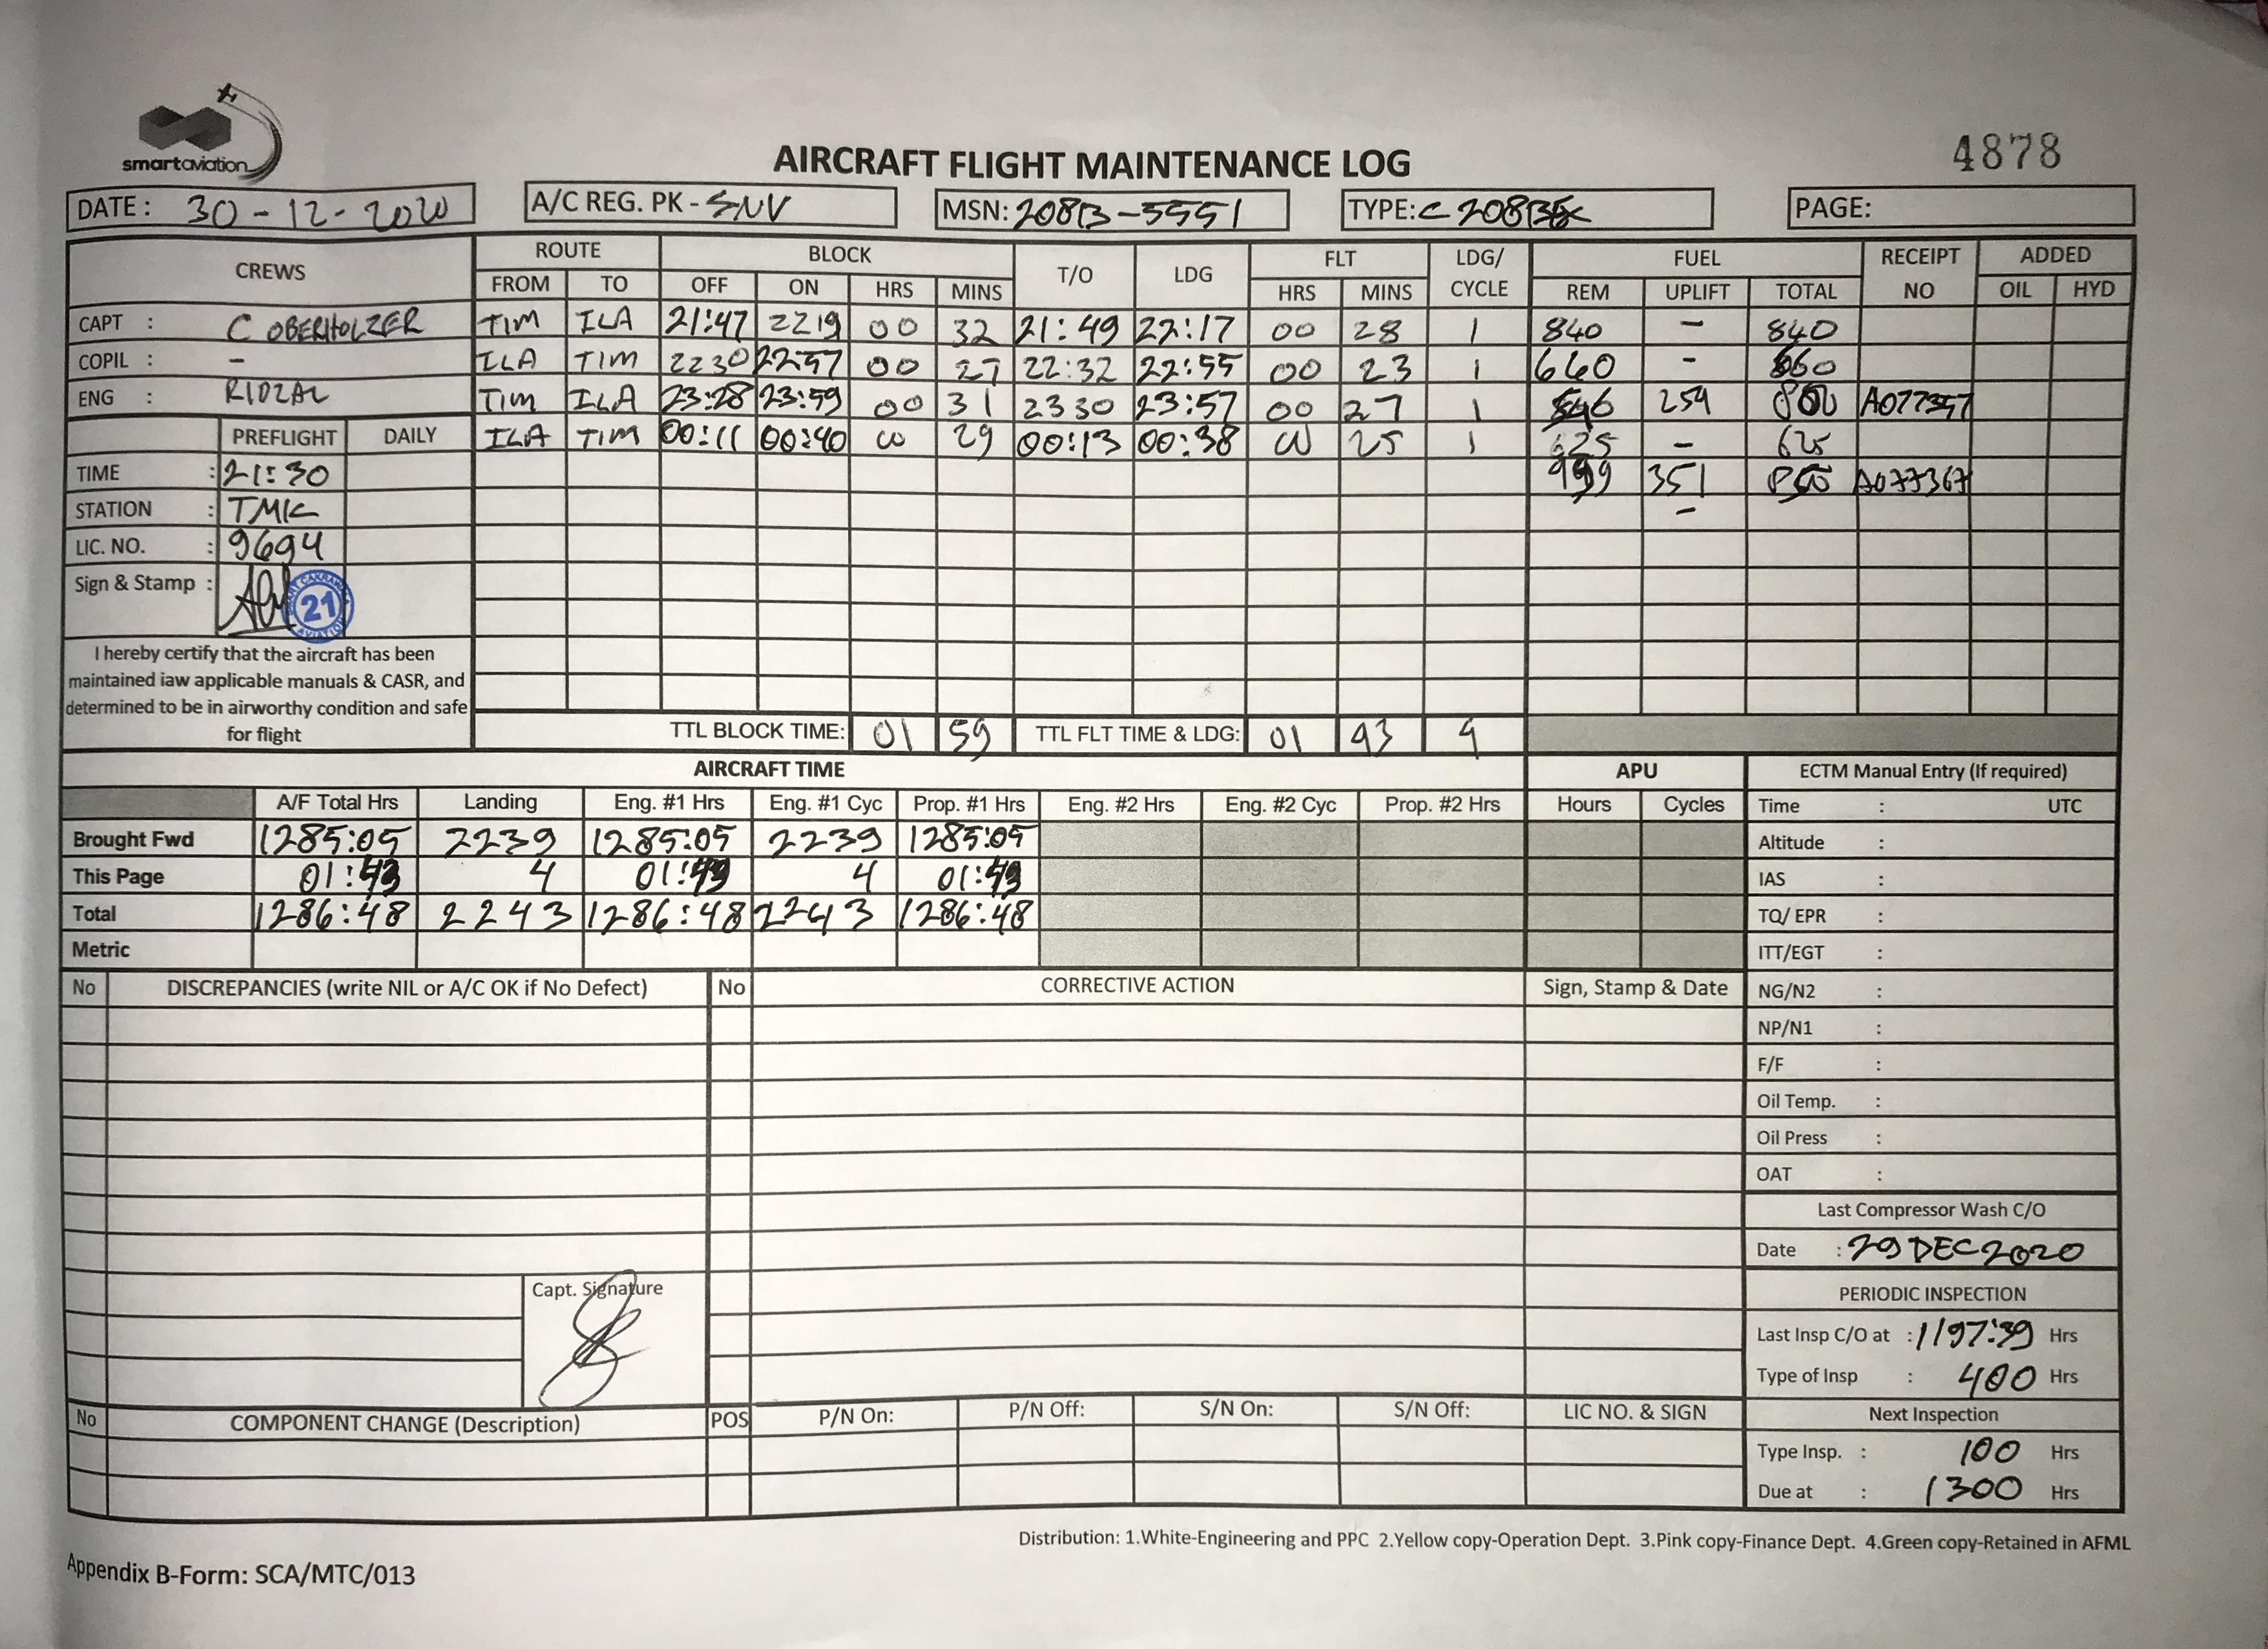 smartaviation
AIRCRAFT FLIGHT MAINTENANCE LOG
4878
DATE : 30-12-2020 A/C REG. PK - SNV MSN: 208B-5551 TYPE: C 208B PAGE:
CREWS ROUTE BLOCK T/O LDG FLT LDG/ CYCLE FUEL RECEIPT NO ADDED
FROM TO OFF ON HRS MINS HRS MINS REM UPLIFT TOTAL OIL HYD
CAPT : C OBERHOLZER TIM ILA 21:47 2219 00 32 21:49 22:17 00 28 1 840 - 840
COPIL : - ILA TIM 2230 22:57 00 27 22:32 22:55 00 23 1 660 - 660
ENG : RIDZAL TIM ILA 23:28 23:59 00 31 2330 23:57 00 27 1 546 254 800 A077357
PREFLIGHT DAILY ILA TIM 00:11 00:40 00 29 00:13 00:38 00 25 1 625 - 625
TIME : 21:30 351 850 A077367
STATION : TMIK -
LIC. NO. : 9694
Sign & Stamp : 21
I hereby certify that the aircraft has been
maintained iaw applicable manuals & CASR, and
determined to be in airworthy condition and safe
for flight
TTL BLOCK TIME: 01 59 TTL FLT TIME & LDG: 01 43 4
AIRCRAFT TIME APU ECTM Manual Entry (If required)
A/F Total Hrs Landing Eng. #1 Hrs Eng. #1 Cyc Prop. #1 Hrs Eng. #2 Hrs Eng. #2 Cyc Prop. #2 Hrs Hours Cycles Time : UTC
Brought Fwd 1285:05 2239 1285:05 2239 1285:05 Altitude :
This Page 01:43 4 01:43 4 01:43 IAS :
Total 1286:48 2243 1286:48 2243 1286:48 TQ/ EPR :
Metric ITT/EGT :
No DISCREPANCIES (write NIL or A/C OK if No Defect) No CORRECTIVE ACTION Sign, Stamp & Date NG/N2 :
NP/N1 :
F/F :
Oil Temp. :
Oil Press :
OAT :
Last Compressor Wash C/O
Date : 29 DEC 2020
Capt. Signature
PERIODIC INSPECTION
Last Insp C/O at : 1197:39 Hrs
Type of Insp : 400 Hrs
No COMPONENT CHANGE (Description) POS P/N On: P/N Off: S/N On: S/N Off: LIC NO. & SIGN Next Inspection
Type Insp. : 100 Hrs
Due at : 1300 Hrs
Distribution: 1.White-Engineering and PPC 2.Yellow copy-Operation Dept. 3.Pink copy-Finance Dept. 4.Green copy-Retained in AFML
Appendix B-Form: SCA/MTC/013